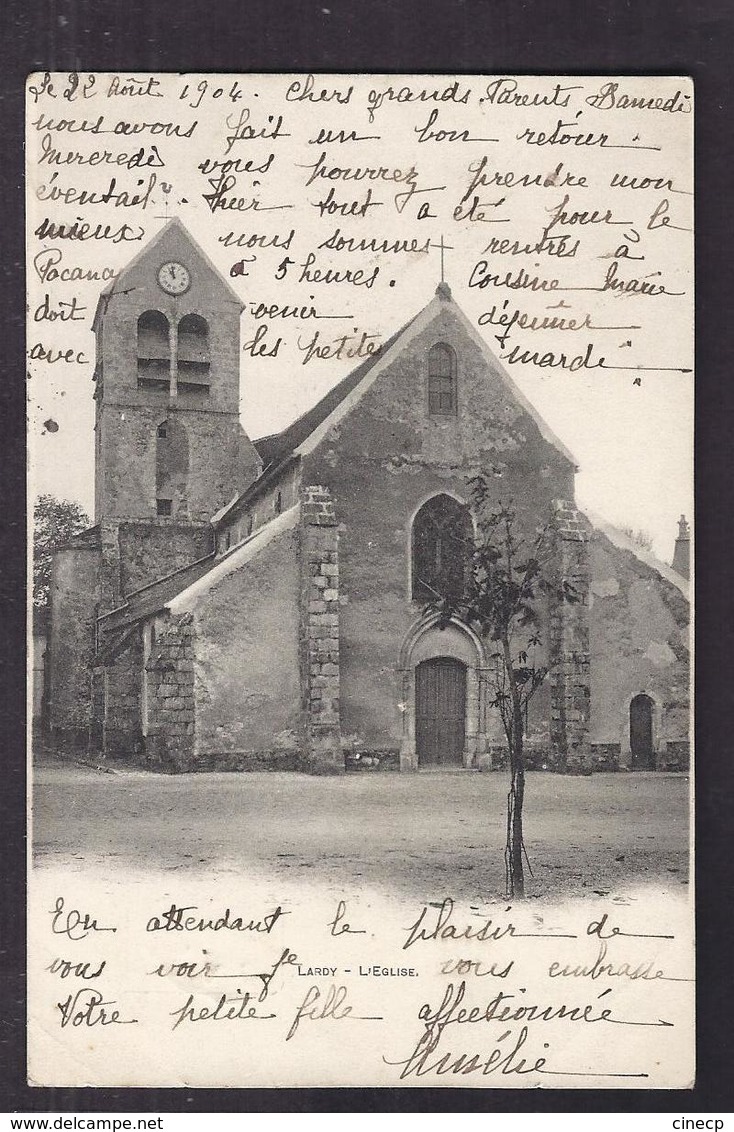 le 22 Août 1904. Chers grands. Parents Samedi
nous avons fait un bon retour.
Mercredi vous pourrez prendre mon
éventail. Hier tout a été pour le
mieux nous sommes rentrés à
à 5 heures. Cousine Marie
doit venir déjeuner
avec les petite mardi
En attendant le plaisir de
vous voir je vous embrasse
LARDY - L'EGLISE.
Votre petite fille affectionnée
Amélie
cinecp